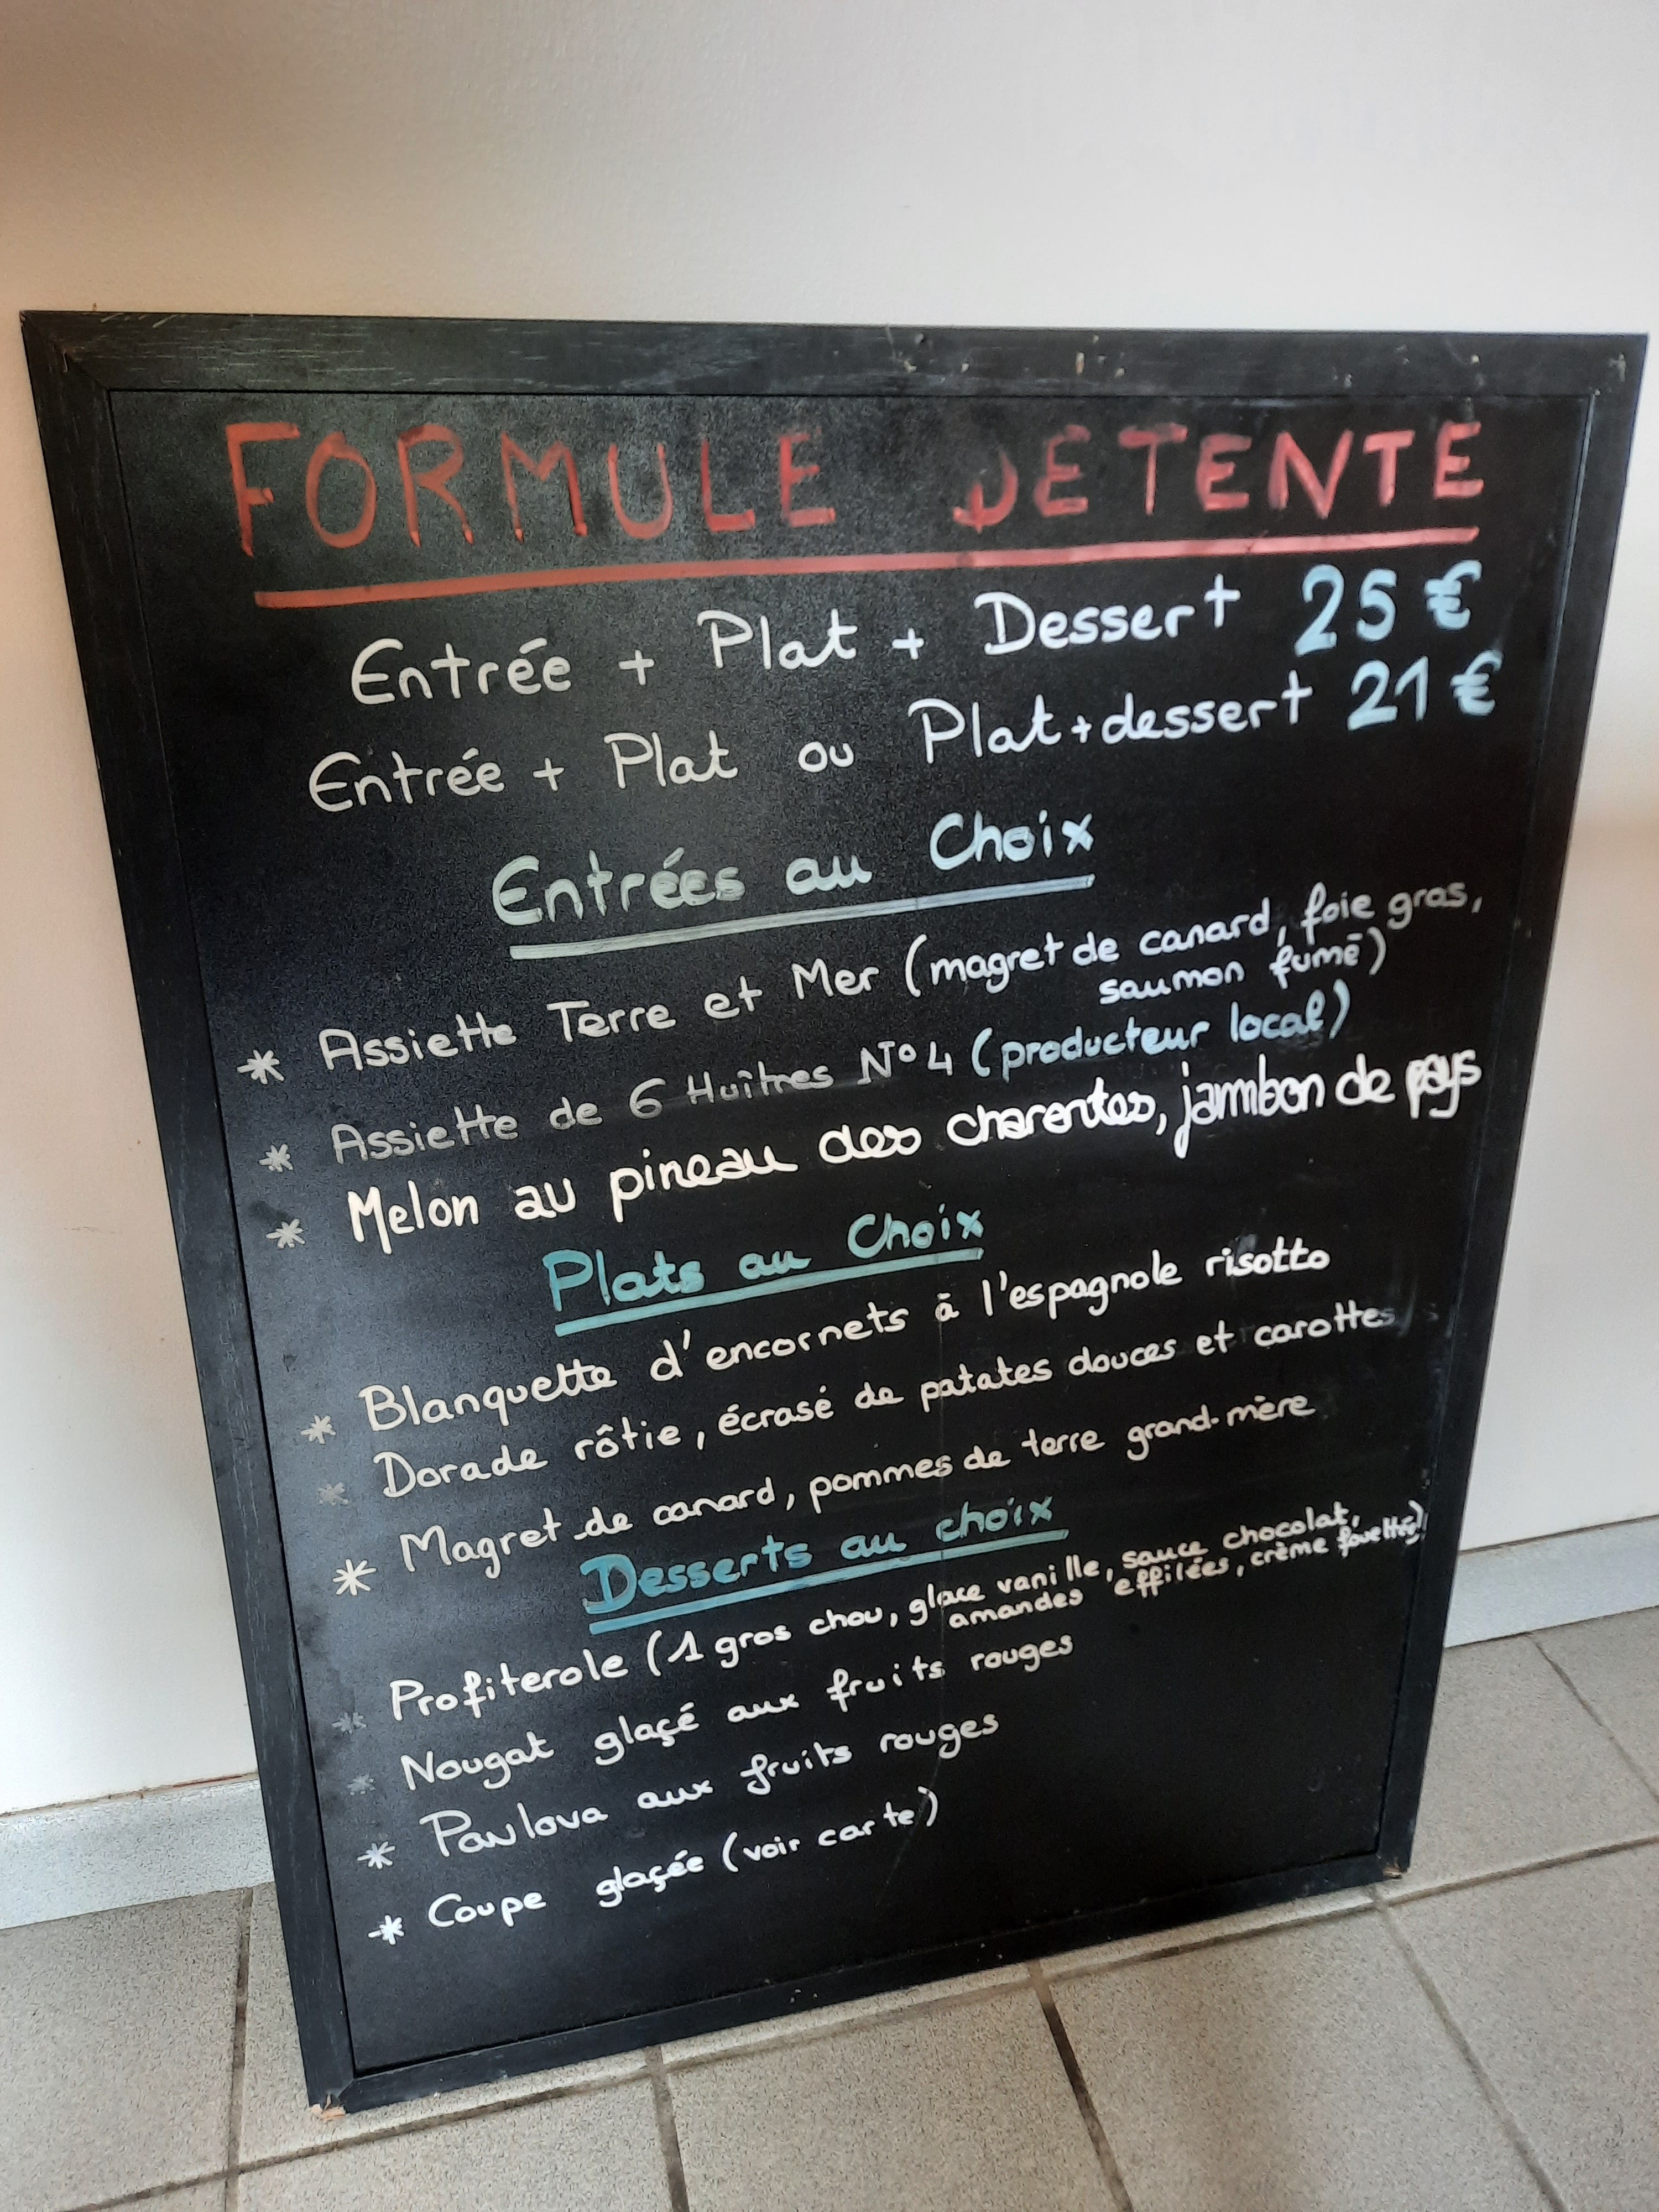 FORMULE DETENTE
Entrée + Plat + Dessert 25 €
Entrée + Plat ou Plat + dessert 21 €
Entrées au Choix
* Assiette Terre et Mer (magret de canard, foie gras,
saumon fumé)
* Assiette de 6 Huîtres N° 4 (producteur local)
* Melon au pineau des charentes, jambon de pays
Plats au Choix
* Blanquette d'encornets à l'espagnole risotto
* Dorade rôtie, écrasé de patates douces et carottes
* Magret de canard, pommes de terre grand-mère
Desserts au choix
* Profiterole (1 gros chou, glace vanille, sauce chocolat,
amandes effilées, crème fouettée)
* Nougat glaçé aux fruits rouges
* Pavlova aux fruits rouges
* Coupe glaçée (voir carte)